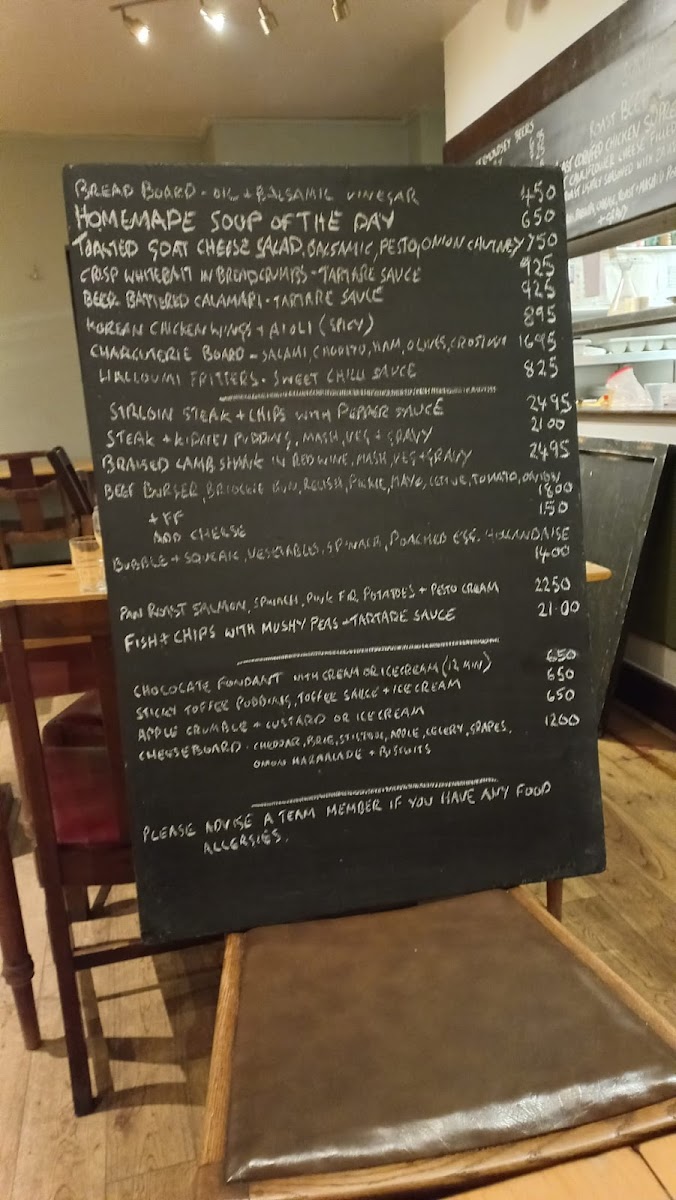 BREAD BOARD - OIL + BALSAMIC VINEGAR 450
HOMEMADE SOUP OF THE DAY 650
TOASTED GOAT CHEESE SALAD, BALSAMIC, PESTO, ONION CHUTNEY 750
CRISP WHITEBAIT IN BREADCRUMBS - TARTARE SAUCE 925
BEER BATTERED CALAMARI - TARTARE SAUCE 925
KOREAN CHICKEN WINGS + AIOLI (SPICY) 895
CHARCUTERIE BOARD - SALAMI, CHORITO, HAM, OLIVES, CROSTINI 1695
HALLOUMI FRITTERS - SWEET CHILLI SAUCE 825
SIRLOIN STEAK + CHIPS WITH PEPPER SAUCE 2495
STEAK + KIDNEY PUDDING, MASH, VEG + GRAVY 2100
BRAISED LAMB SHANK IN RED WINE, MASH, VEG + GRAVY 2495
BEEF BURGER, BRIOCHE BUN, RELISH, PICKLE, MAYO, TOMATO, ONION
+ FF 1800
ADD CHEESE 150
BUBBLE + SQUEAK, VEGETABLES, SPINACH, POACHED EGG. HOLLANDAISE
1400
PAN ROAST SALMON, SPINACH, PINK FIR POTATOES + PESTO CREAM 2250
FISH + CHIPS WITH MUSHY PEAS - TARTARE SAUCE 21.00
CHOCOLATE FONDANT WITH CREAM OR ICECREAM (12 MIN) 650
STICKY TOFFEE PUDDING, TOFFEE SAUCE + ICE CREAM 650
APPLE CRUMBLE + CUSTARD OR ICE CREAM 650
CHEESEBOARD - CHEDDAR, BRIE, STILTON, APPLE, CELERY, GRAPES, 1200
ONION MARMALADE + BISCUITS
PLEASE ADVISE A TEAM MEMBER IF YOU HAVE ANY FOOD
ALLERGIES.
BEERS
ROAST BEEF
CHICKEN SUPREME
CAULIFLOWER CHEESE
+ GRAVY